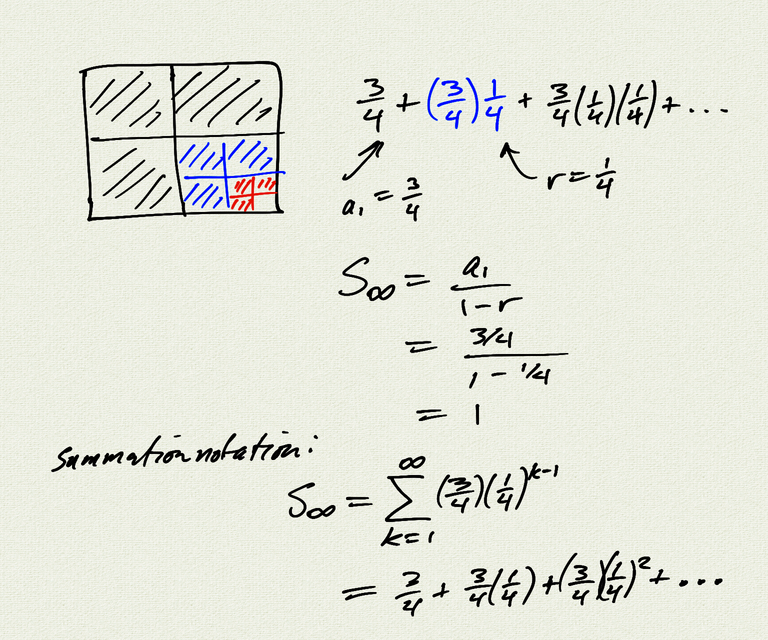 3/4 + (3/4) 1/4 + 3/4 (1/4)(1/4) + ...
a₁ = 3/4
r = 1/4
S∞ = a₁ / 1 - r
= 3/4 / 1 - 1/4
= 1
Summation notation:
S∞ = ∑ k=1 ∞ (3/4)(1/4)^k-1
= 3/4 + 3/4 (1/4) + (3/4)(1/4)² + ...